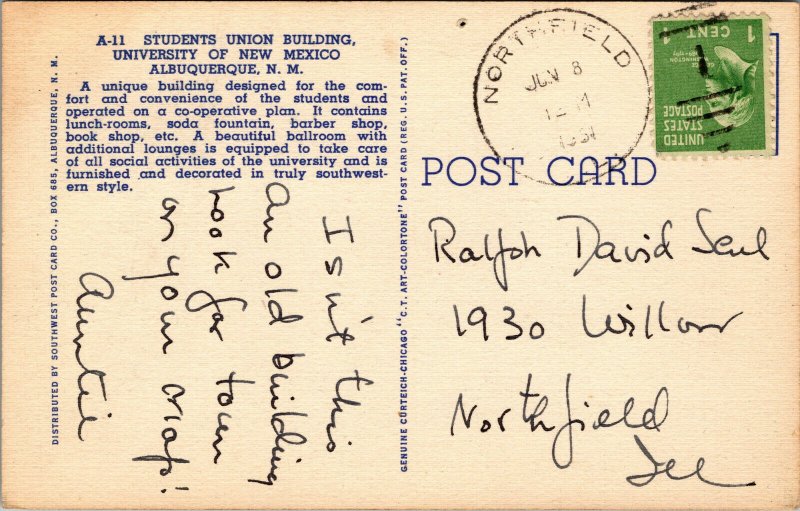 A-11 STUDENTS UNION BUILDING,
UNIVERSITY OF NEW MEXICO
ALBUQUERQUE, N. M.
A unique building designed for the com-
fort and convenience of the students and
operated on a co-operative plan. It contains
lunch-rooms, soda fountain, barber shop,
book shop, etc. A beautiful ballroom with
additional lounges is equipped to take care
of all social activities of the university and is
furnished and decorated in truly southwest-
ern style.
Isn't this
an old building
Look for town
on your map!
Auntie
DISTRIBUTED BY SOUTHWEST POST CARD CO., BOX 685, ALBUQUERQUE, N. M.
GENUINE CURTEICH-CHICAGO "C. T. ART-COLORTONE" POST CARD (REG. U. S. PAT. OFF.)
NORTHFIELD
JUN 8
1951
1
CENT
UNITED
STATES
POSTAGE
POST CARD
Ralph David
1930 Willow
Northfield
Ill